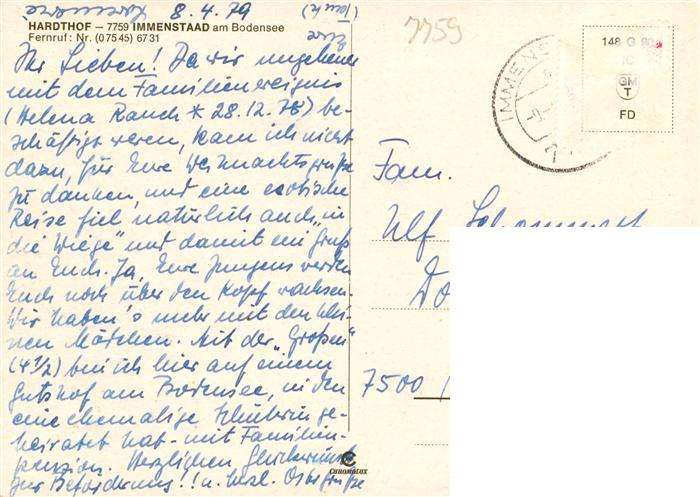 8.4.79
HARDTHOF – 7759 IMMENSTAAD am Bodensee
Fernruf: Nr. (07545) 6731
Ihr Lieben! Da wir ungeheuer
mit dem Familienereignis
(Helena Rauch * 28.12.78) be-
schäftigt waren, kam ich nicht
dazu, für Eure Weihnachtsgrüße
zu danken, und eine exotische
Reise fiel natürlich auch „in
die Wiege" und damit ein Gruß
an Euch. Ja, Eure Jungens werden
Euch noch über den Kopf wachsen.
Wir haben's mehr mit den klei-
nen Mädchen. Mit der „Großen"
(4 1/2) bin ich hier auf einem
Gutshof am Bodensee, in den
eine ehemalige Schülerin ge-
heiratet hat - mit Familien-
pension. Herzlichen Glückwunsch
zur Beförderung!! u. herzl. Ostergrüße
Eure
7759
IMMENS
148 G
GM
T
FD
Fam.
Ulf
Do
7500
CHROMOLUX